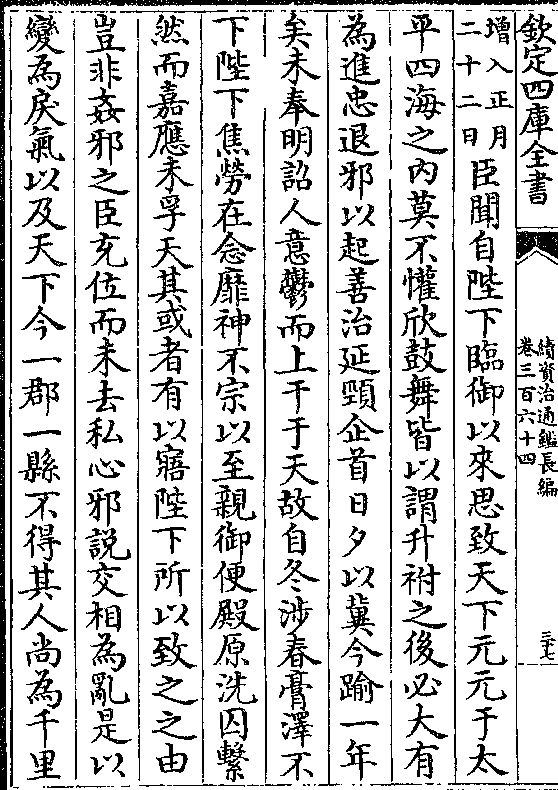 欽定四庫全書
續資治通鑑長編
卷三百六十四
三七
增入正月
二十二日
臣聞自陛下臨御以來思致天下元元于太
平四海之内莫不懽欣鼓舞皆以謂升祔之後必大有
為進忠退邪以起善治延頸企首日夕以冀今踰一年
矣未奉明詔人意鬱而上干于天故自冬涉春膏澤不
下陛下焦勞在念靡神不宗以至親御便殿原洗囚繫
然而嘉應未孚天其或者有以寤陛下所以致之之由
豈非姦邪之臣充位而未去私心邪說交相為亂是以
變為戾氣以及天下今一郡一縣不得其人尚為千里